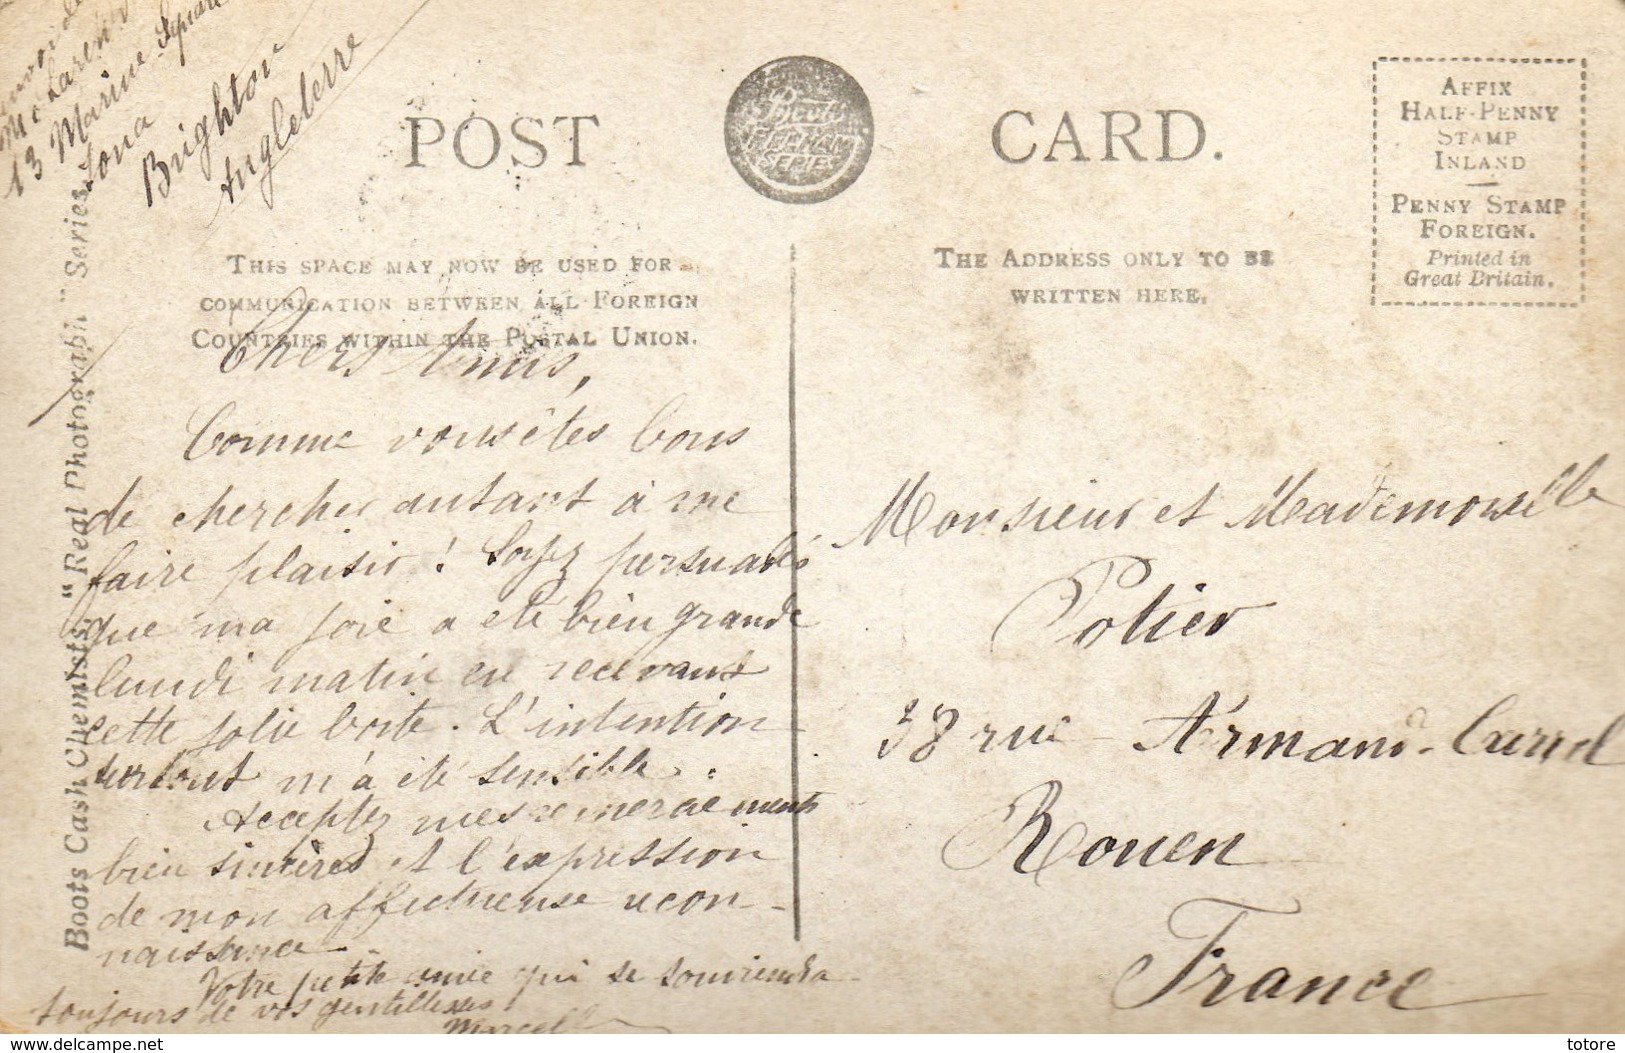 Mc Laren
13 Marine Square
Iona
Brighton
Angleterre
POST CARD.
AFFIX
HALF-PENNY
STAMP
INLAND
PENNY STAMP
FOREIGN.
Printed in
Great Britain.
THIS SPACE MAY NOW BE USED FOR
COMMUNICATION BETWEEN ALL FOREIGN
COUNTRIES WITHIN THE POSTAL UNION.
THE ADDRESS ONLY TO BE
WRITTEN HERE.
Boots Cash Chemists "Real Photograph" Series.
Chers Amis,
Comme vous êtes bons
de chercher autant à me
faire plaisir ! Soyez persuadés
que ma joie a été bien grande
lundi matin en recevant
cette jolie boîte. L'intention
surtout m'a été sensible.
Acceptez mes remerciements
bien sincères et l'expression
de mon affectueuse recon-
naissance.
Votre petite amie qui se souviendra
toujours de vos gentillesses
Marcelle
Monsieur et Mademoiselle
Potier
38 rue Armand-Carrel
Rouen
France
delcampe.net
totore